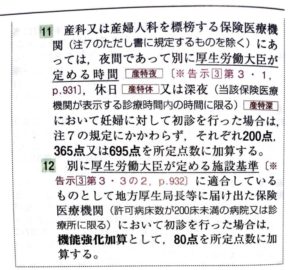 11 産科又は産婦人科を標榜する保険医療機
関（注7のただし書に規定するものを除く）にあ
っては，夜間であって別に厚生労働大臣が
定める時間 産特夜 〔※告示③第3・1,
p.931〕，休日 産特休 又は深夜（当該保険医療
機関が表示する診療時間内の時間に限る）産特深
において妊婦に対して初診を行った場合は，
注7の規定にかかわらず，それぞれ200点，
365点又は695点を所定点数に加算する。
12 別に厚生労働大臣が定める施設基準〔※
告示③第3・3の2，p.932〕に適合している
ものとして地方厚生局長等に届け出た保険
医療機関（許可病床数が200床未満の病院又は診
療所に限る）において初診を行った場合は，
機能強化加算として，80点を所定点数に加
算する。